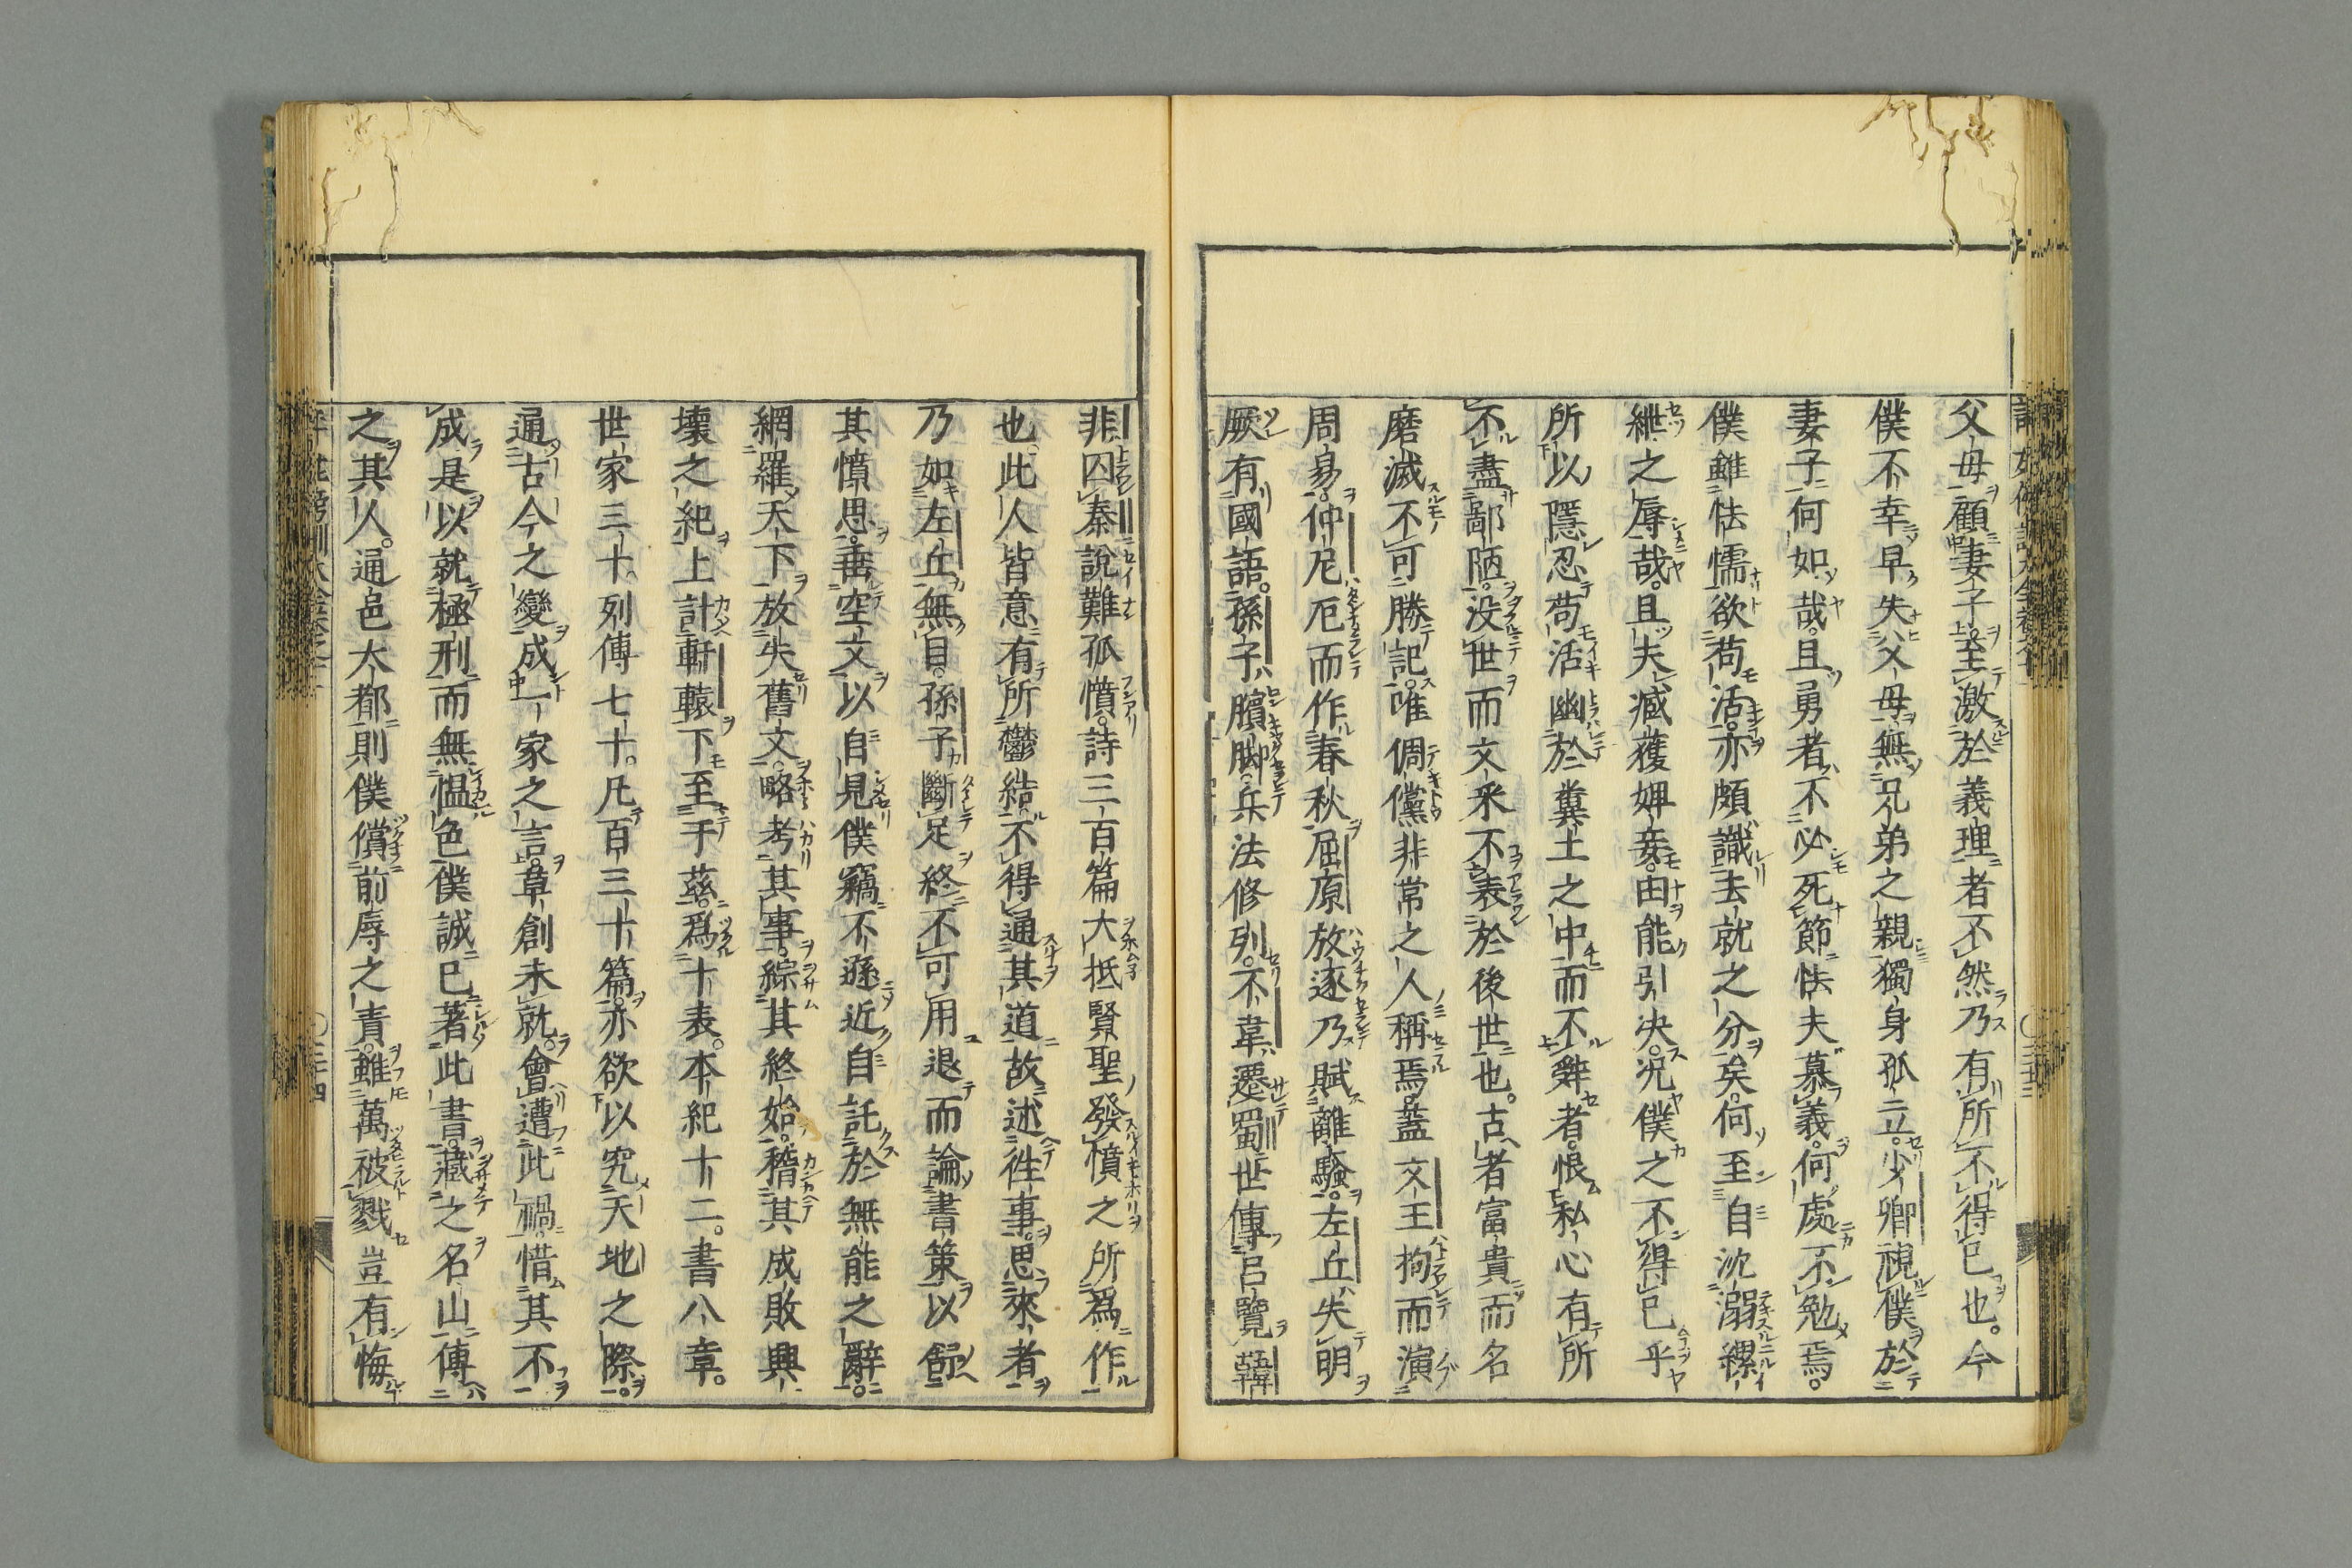 父母顧妻子至激於義理者不然乃有所不得已也。今
僕不幸早失父母無兄弟之親獨身孤立。少卿視僕於
妻子何如哉。且勇者不必死節怯夫慕義。何處不勉焉。
僕雖怯懦欲苟活。亦頗識去就之分矣。何至自沈溺縲
紲之辱哉。且夫臧獲婢妾。由能引决。况僕之不得已乎
所以隱忍苟活幽於糞土之中而不辭者。恨私心有所
不盡鄙陋。没世而文采不表於後世也。古者富貴而名
磨滅不可勝記。唯倜儻非常之人稱焉。蓋文王拘而演
周易。仲尼厄而作春秋。屈原放逐乃賦離騷。左丘失明
厥有國語。孫子臏脚。兵法修列。不韋遷蜀世傳呂覽韓
非囚秦說難孤憤。詩三百篇大抵賢聖發憤之所爲作
也。此人皆意有所鬱結不得通其道故述往事。思來者
乃如左丘無目。孫子斷足終不可用退而論書策以舒
其憤思。垂空文以自見僕竊不遜近自託於無能之辭。
網羅天下放失舊文。略考其事。綜其終始。稽其成敗興
壞之紀上計軒轅下至于茲。爲十表。本紀十二。書八章。
世家三十。列傳七十。凡百三十篇。亦欲以究天地之際。
通古今之變成一家之言。草創未就。會遭此禍惜其不
成是以就極刑而無慍色僕誠已著此書。藏之名山傳
之其人。通邑大都則僕償前辱之責。雖萬被戮豈有悔